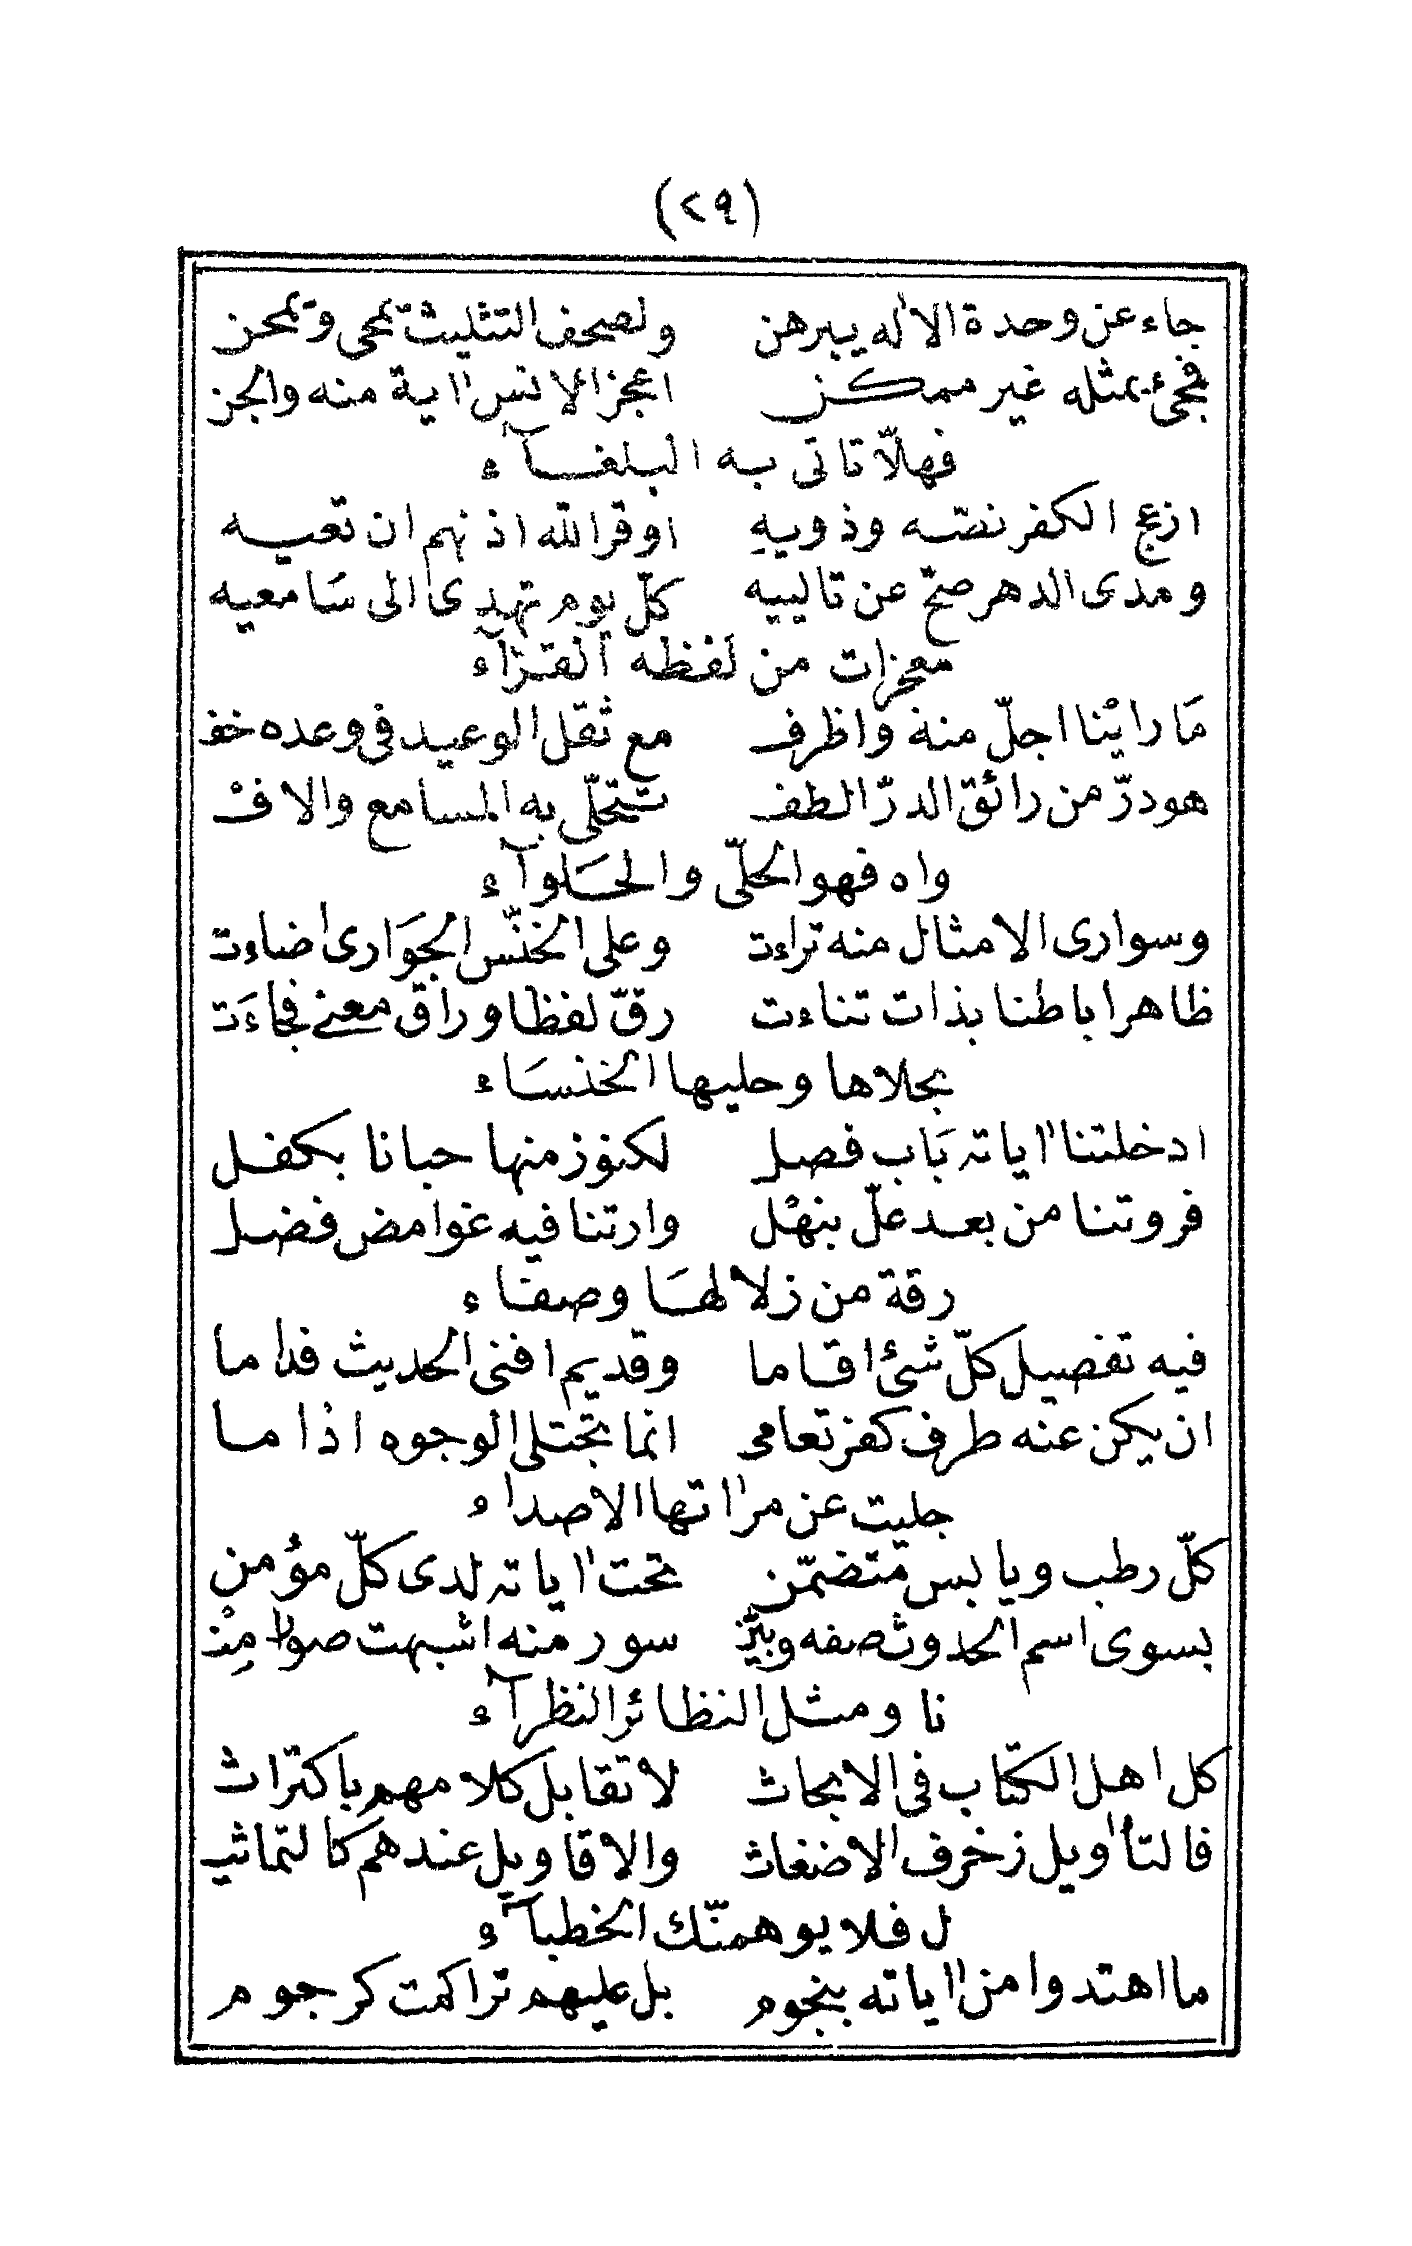 (٢٩)
جاء عن وحدة الاله يبرهن ولصحف التثليث تمحى وتمحن
فجئ بمثله غير ممكن اعجز الانس اية منه والجن
فهلاّ تاتى به البلغآء
ازعج الكفر نصّه وذويهِ اوقر الله اذنهم ان تعيه
ومدى الدهر صحّ عن تالييه كلّ يوم تهدى الى سَامعيه
معجزات من لفظه القرآء
مَا رايْنا اجلّ منه واظرف مع ثقل الوعيد فى وعده خف
هو درّ من رائق الدرّ الطف تتحلّى به المسامع والافْ
واه فهو الحلّى والحَلوآء
وسوارى الامثال منه تراءت وعلى الخنّس الجوَارى اضاءت
ظاهرا باطنا بذات تناءت رقّ لفظا وراق معنى فجاءَت
بجلاها وحليها الخنسَاء
ادخلتنا اياته بَاب فصل لكنوز منها حبانا بكفل
فروتنا من بعد علّ بنهْل وارتنا فيه غوامض فضل
رقة من زلالهَا وصفاء
فيه تفصيل كلّ شئ اقاما وقديم افنى الحديث فداما
ان يكن عنه طرف كفر تعامى انما تجتلى الوجوه اذا ما
جليت عن مراتها الاصداء
كلّ رطب ويابس متضمّن تحت اياته لدى كلّ مؤمن
بسوى اسم الحدوث صفه وبيّن سور منه اشبهت صورا مِنْ
نا ومثل النظائر النظرآء
كل اهل الكتاب فى الابحاث لا تقابل كلامهم باكتراث
فالتأويل زخرف الاضغاث والاقاويل عندهم كالتماثيـ
ل فلا يوهمنّك الخطبآء
ما اهتدوا من اياته بنجوم بل عليهم تراكمت كرجوم